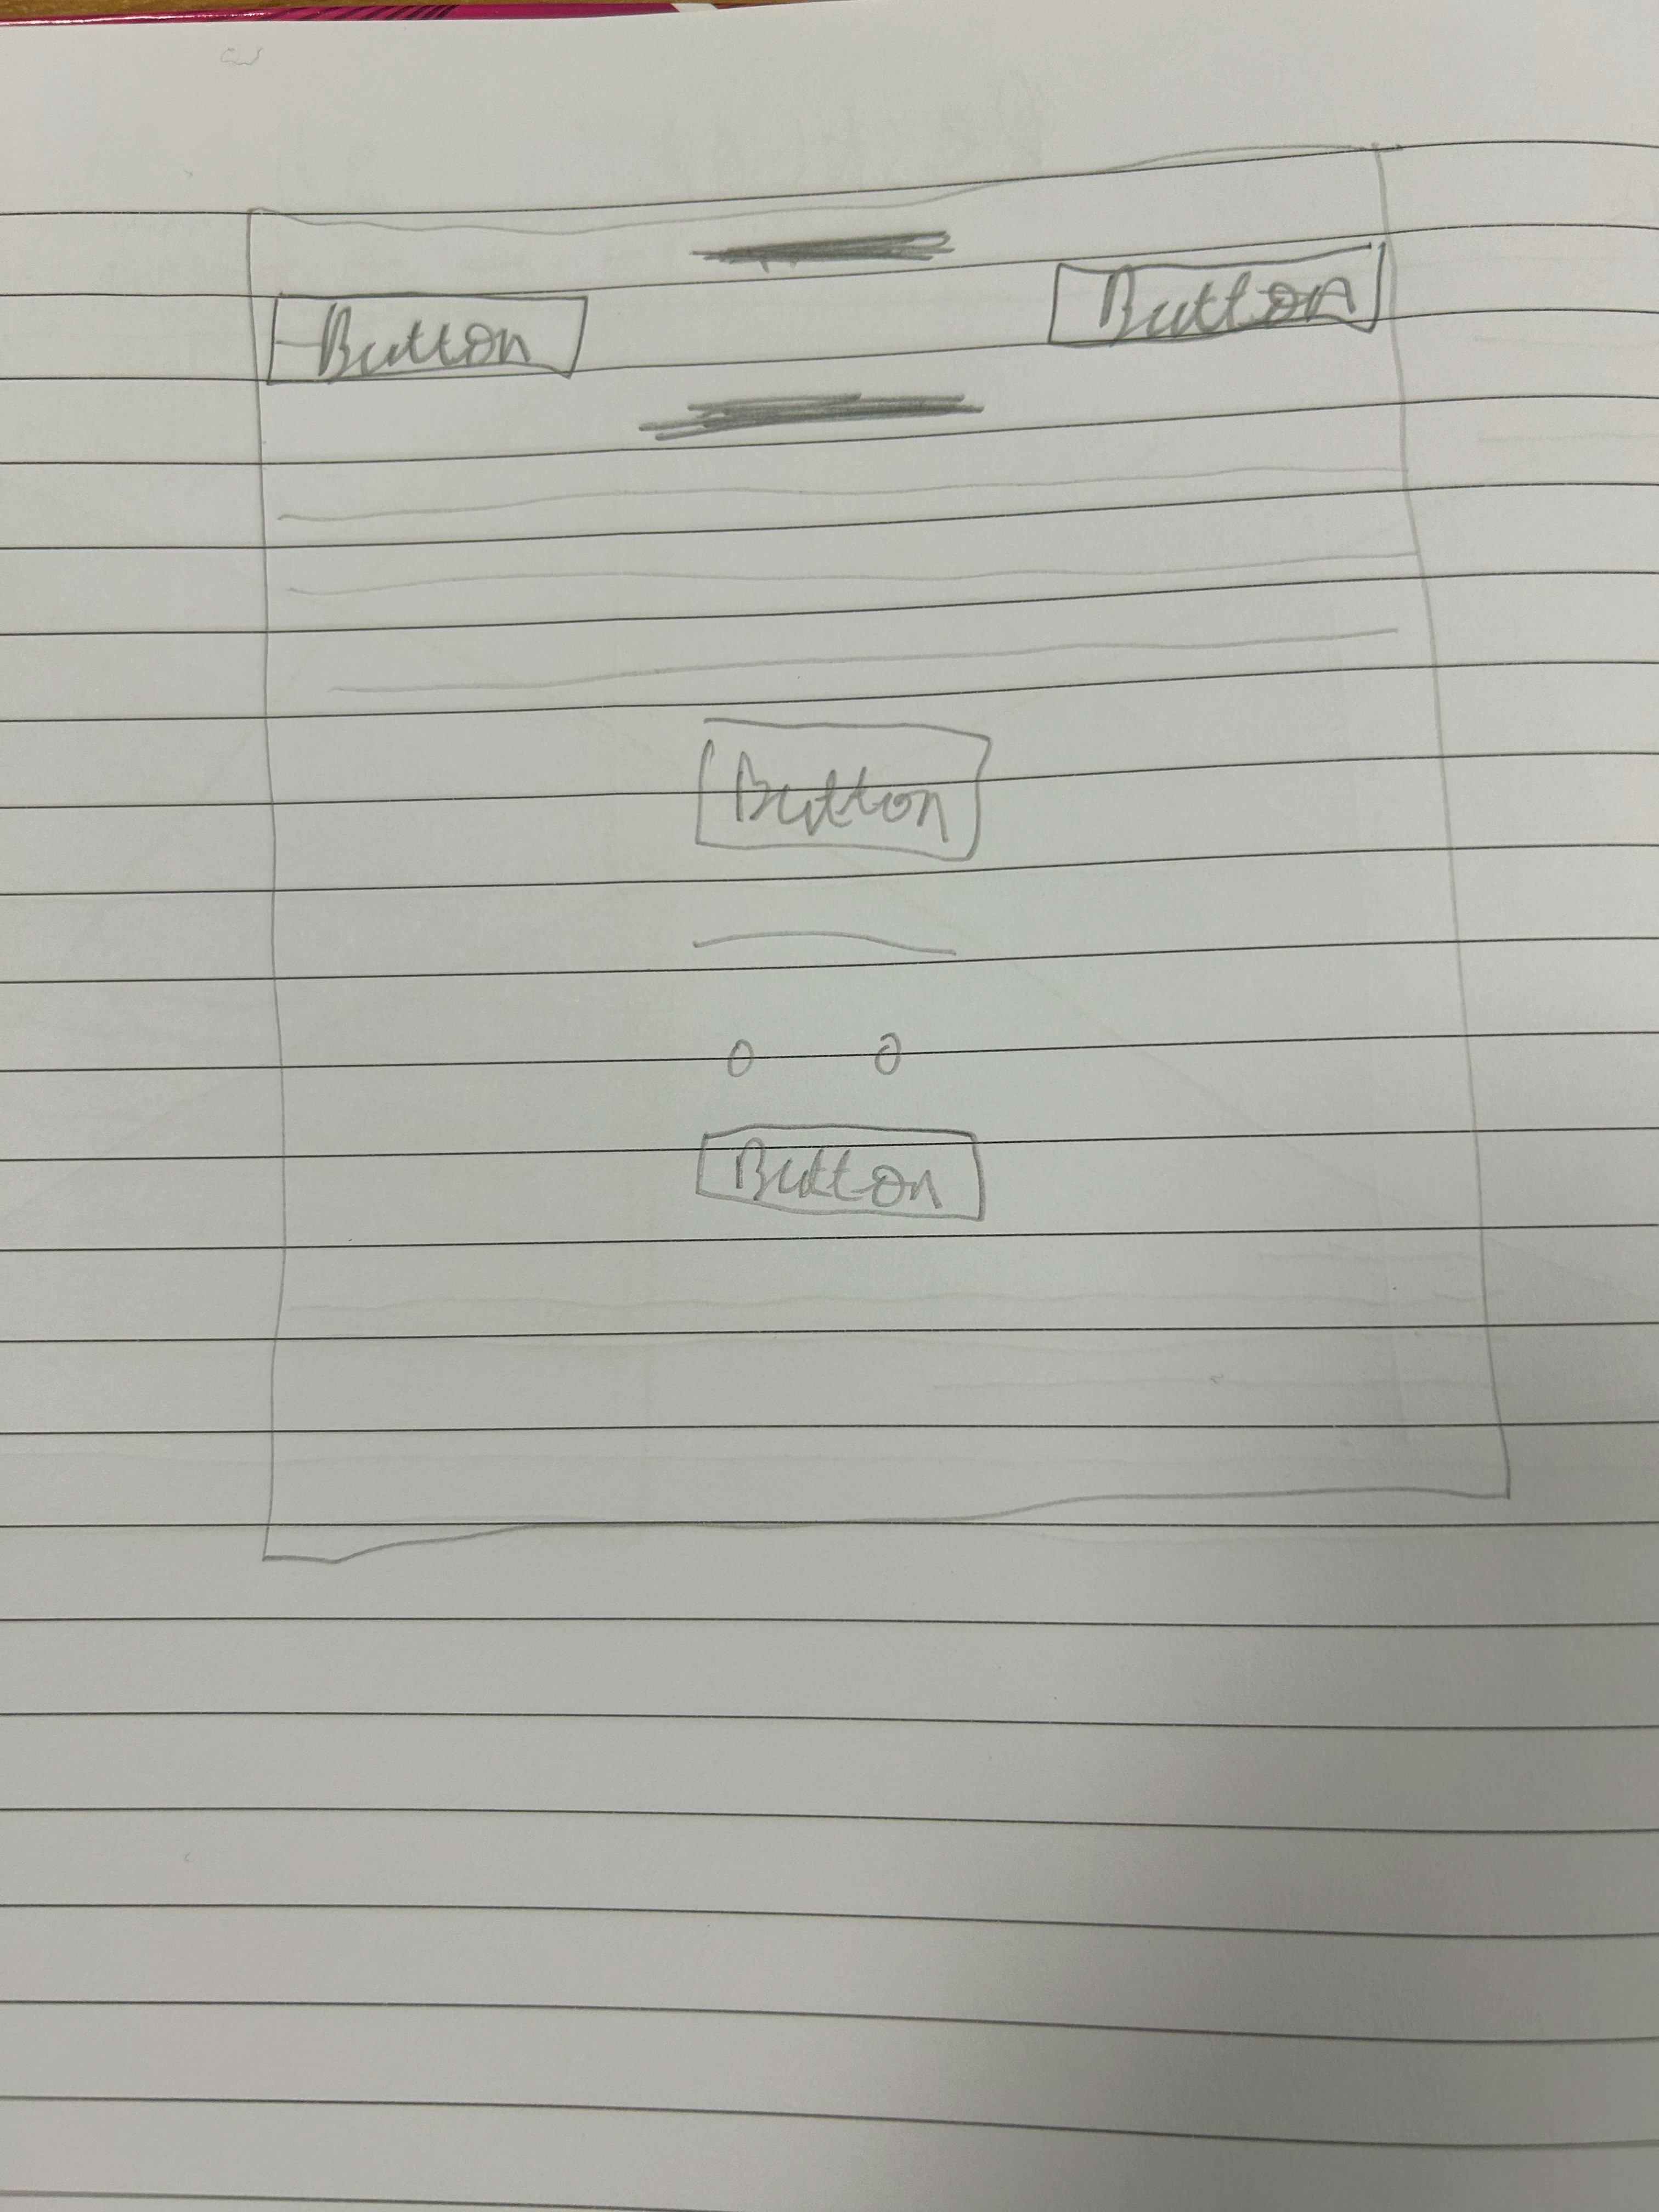 Button
Button
Button
Button